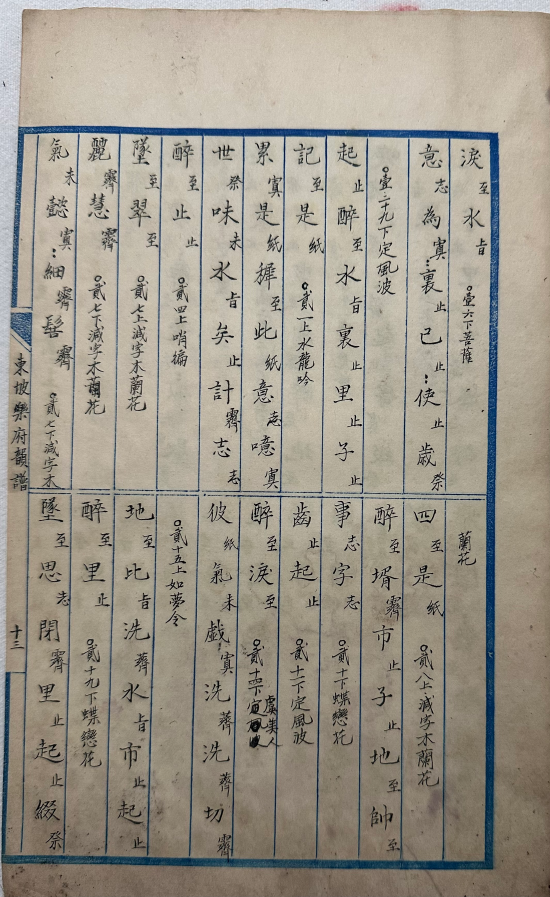 淚至水旨 ○壹六下菩薩
意志為寘:裏止已止:使止歲祭
○壹二十九下定風波
起止醉至水旨裏止里止子止
記至是紙 ○貳一上水龍吟
累寘是紙穉至此紙意志噫寘
世祭味未水旨矣止計霽志志
醉至止止 ○貳四上哨遍
墜至翠至 ○貳七上減字木蘭花
麗霽慧霽 ○貳七下減字木蘭花
氣未懿寘:細霽髻霽 ○貳七下減字木
蘭花
四至是紙 ○貳八上減字木蘭花
醉至壻霽市止子止地至帥至
事志字志 ○貳十下蝶戀花
齒止起止 ○貳十一下定風波
醉至淚至 ○貳十四下虞美人
彼紙氣未戲寘洗薺洗薺切霽
○貳十五上如夢令
地至比旨洗薺水旨市止起止
醉至里止 ○貳十九下蝶戀花
墜至思志閉霽里止起止綴祭
東坡樂府韻譜
十三